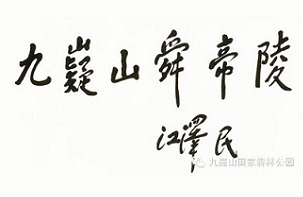 九嶷山舜帝陵
江泽民
九嶷山国家森林公园